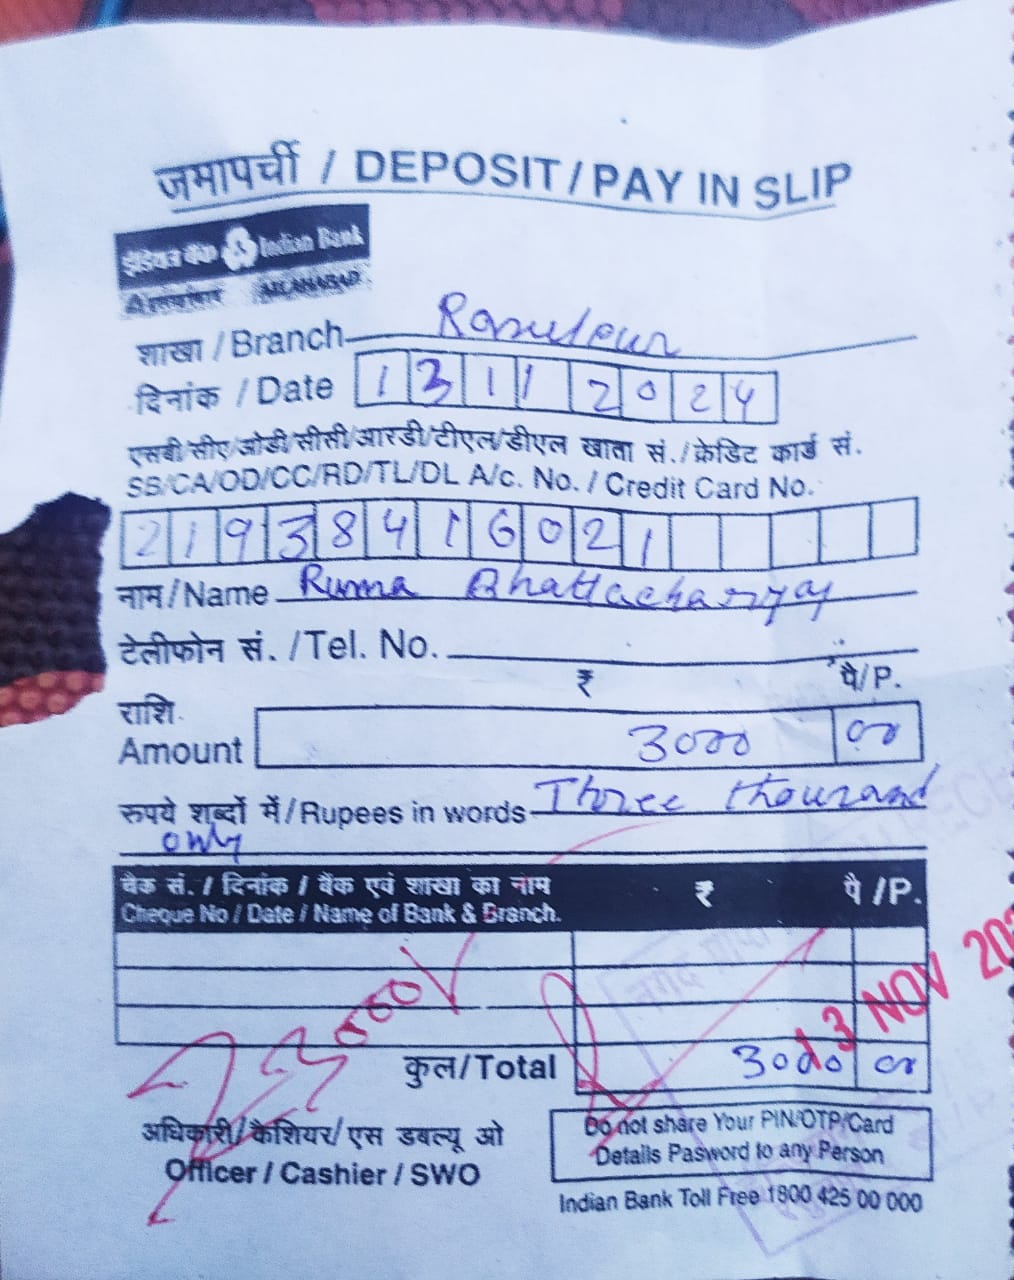 जमापर्ची / DEPOSIT / PAY IN SLIP
इंडियन बैंक Indian Bank
ALLAHABAD
शाखा / Branch Rasulpur
दिनांक / Date 13112024
एसबी/सीए/ओडी/सीसी/आरडी/टीएल/डीएल खाता सं./क्रेडिट कार्ड सं.
SB/CA/OD/CC/RD/TL/DL A/c. No. / Credit Card No.
21938416021
नाम/Name Ruma Bhattacharyay
टेलीफोन सं. /Tel. No.
₹ पै/P.
राशि
Amount 3000 00
रुपये शब्दों में/Rupees in words Three thousand
only
बैंक सं. / दिनांक / बैंक एवं शाखा का नाम ₹ पै /P.
Cheque No / Date / Name of Bank & Branch.
13 NOV 20
कुल/Total 3000 00
अधिकारी/कैशियर/एस डबल्यू ओ
Officer / Cashier / SWO
Do not share Your PIN/OTP/Card
Details Pasword to any Person
Indian Bank Toll Free 1800 425 00 000